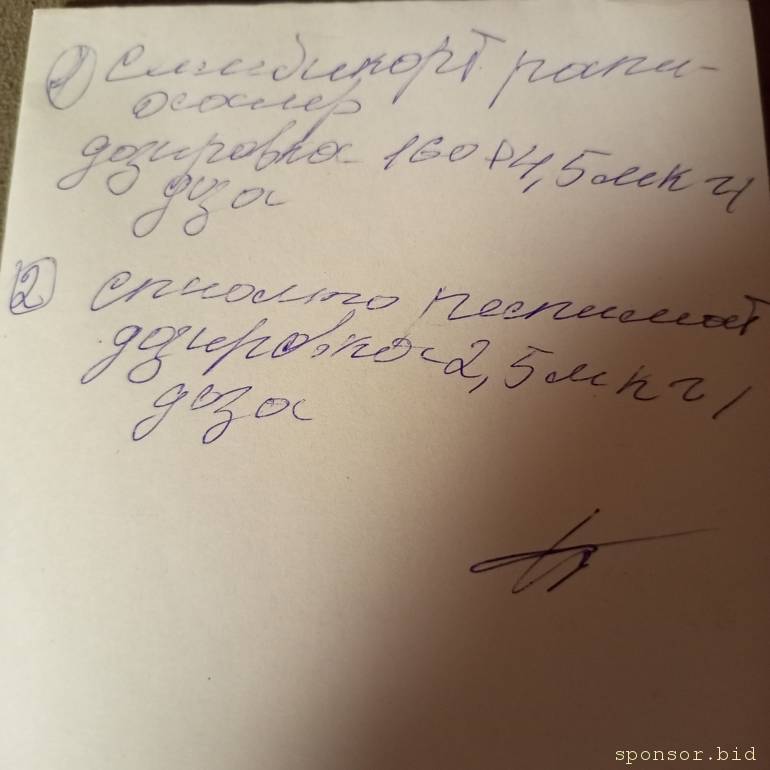 1 Симбикорт рапи-
осалер
дозировка 160+4,5 мкг/
доза
2 спиолто респимат
дозировка-2,5 мкг/
доза
sponsor.bid